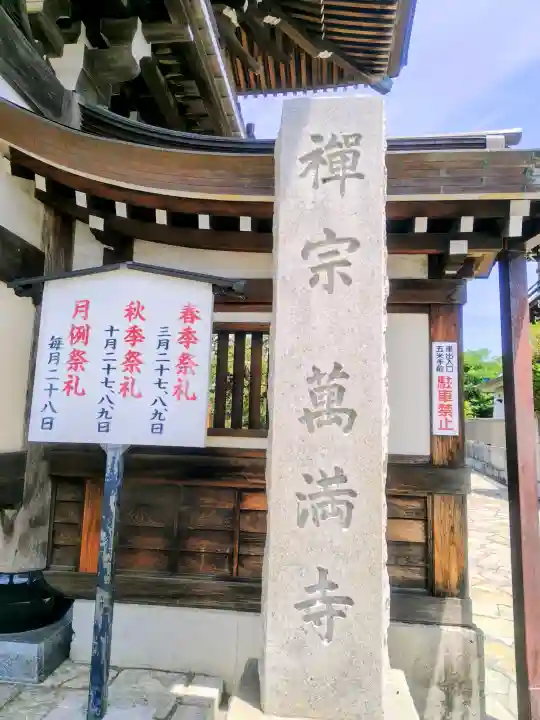 禪宗萬満寺
春季祭礼
三月二十七、八、九日
秋季祭礼
十月二十七、八、九日
月例祭礼
毎月二十八日
車出入口
五米手前
駐車禁止